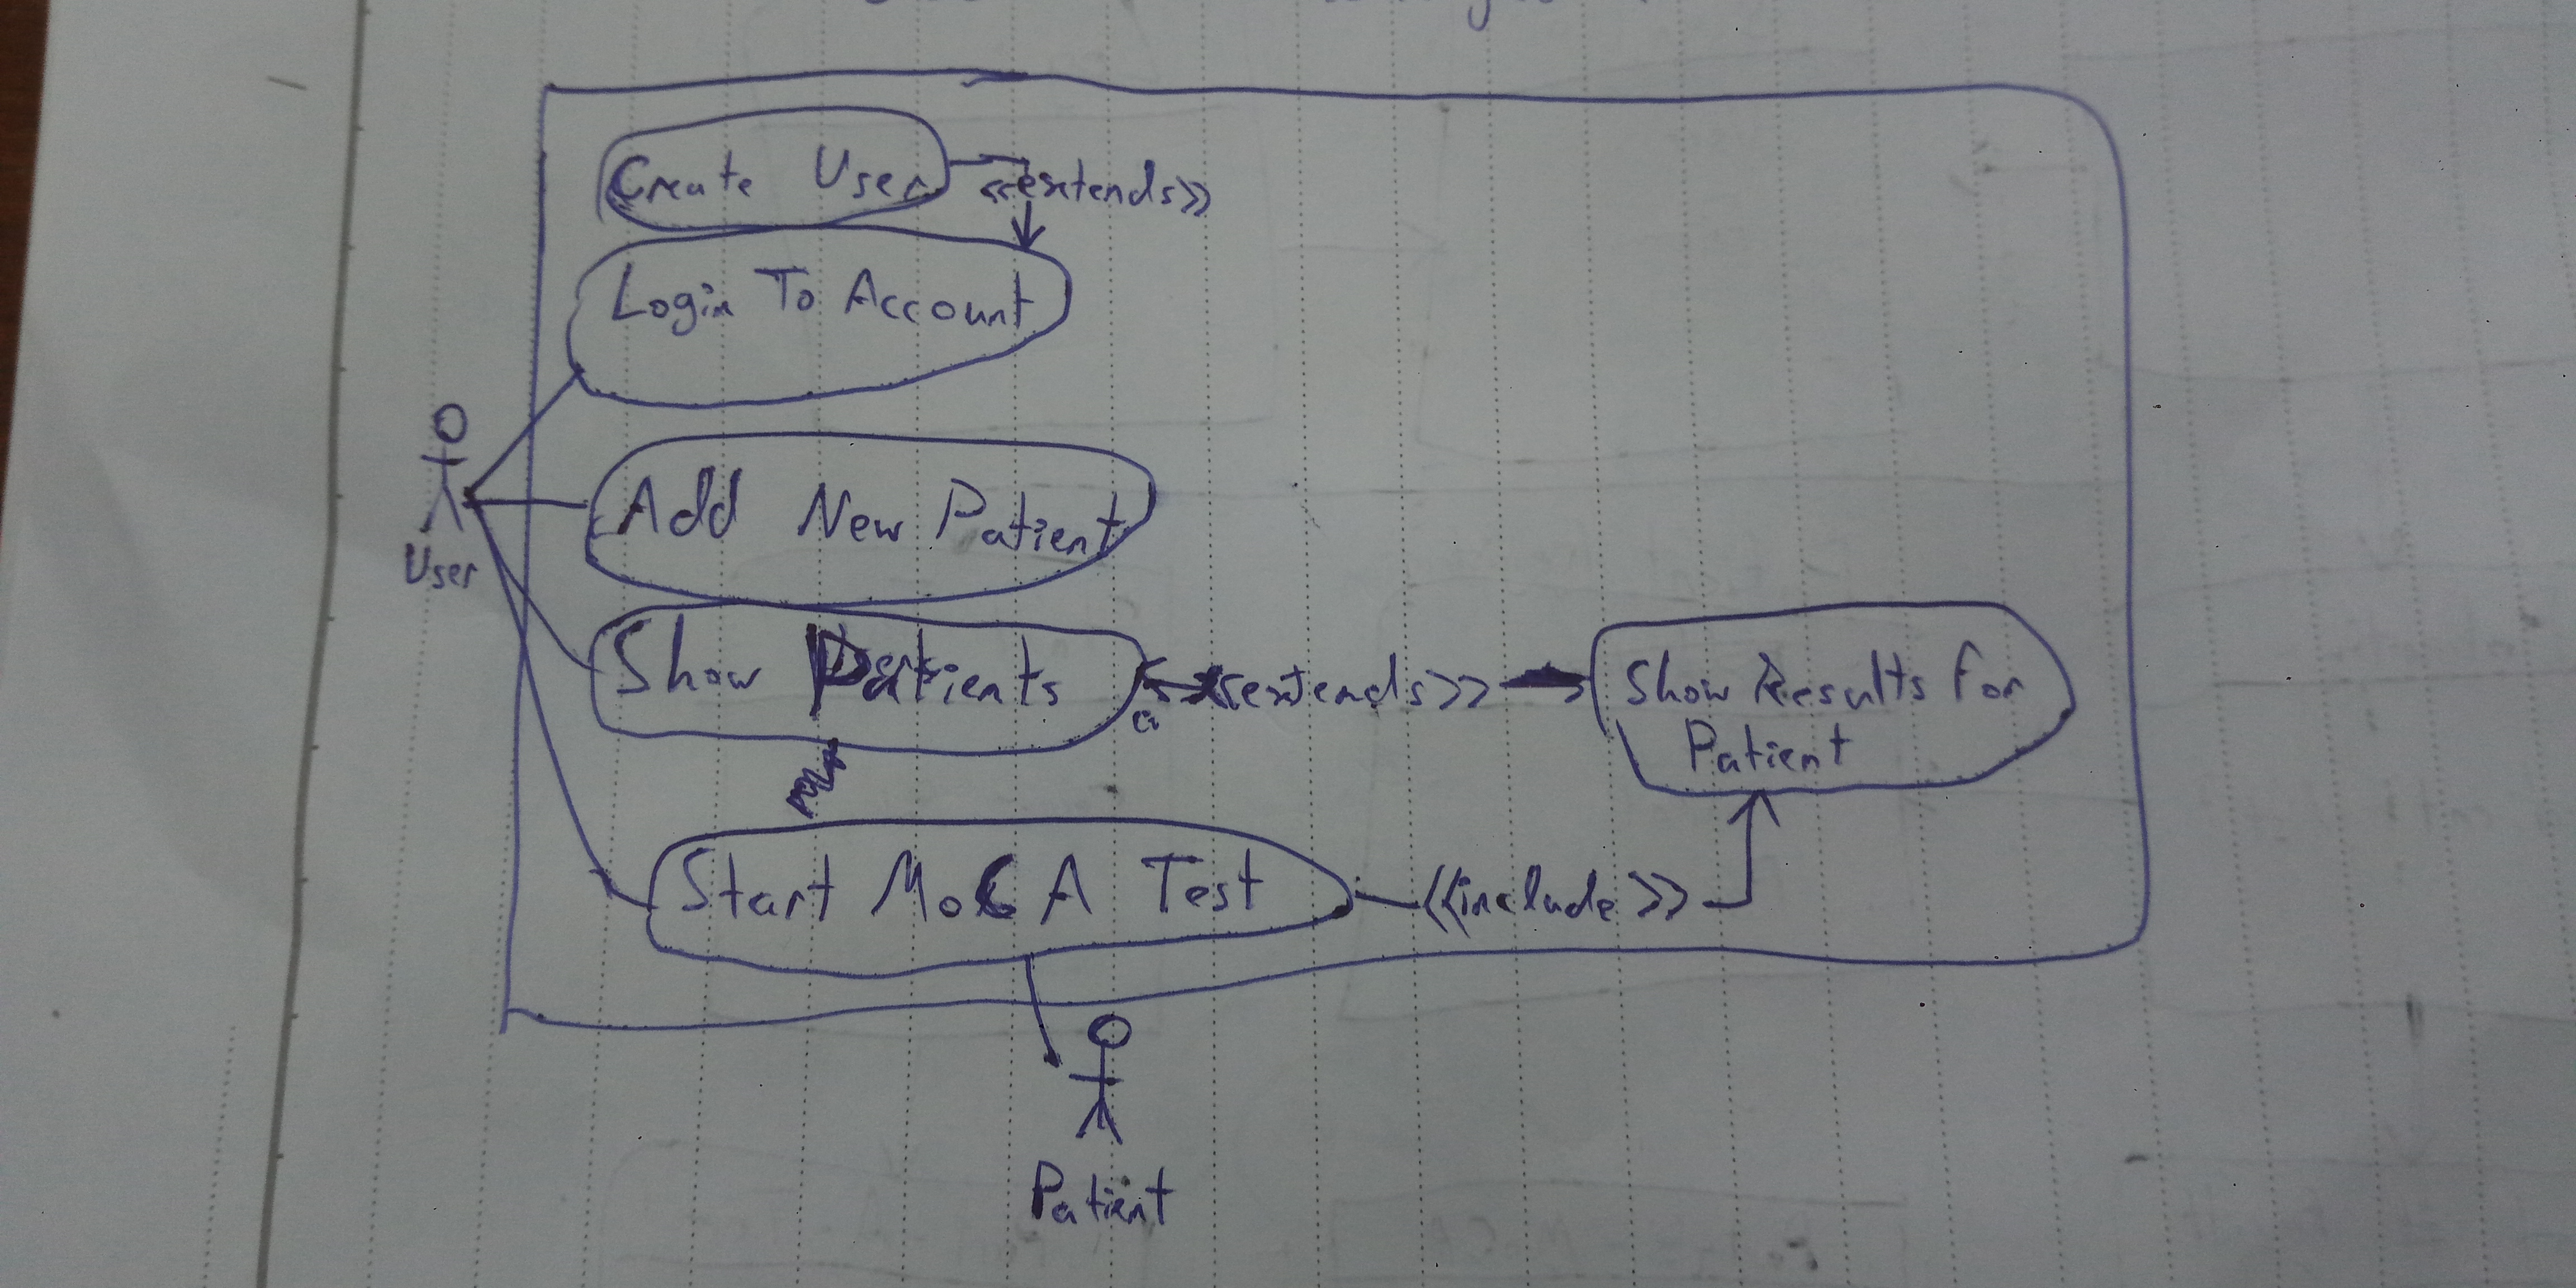 Create User
<<extends>>
Login To Account
User
Add New Patient
Show Patients
<<extends>>
Show Results For
Patient
Start MoCA Test
<<include>>
Patient